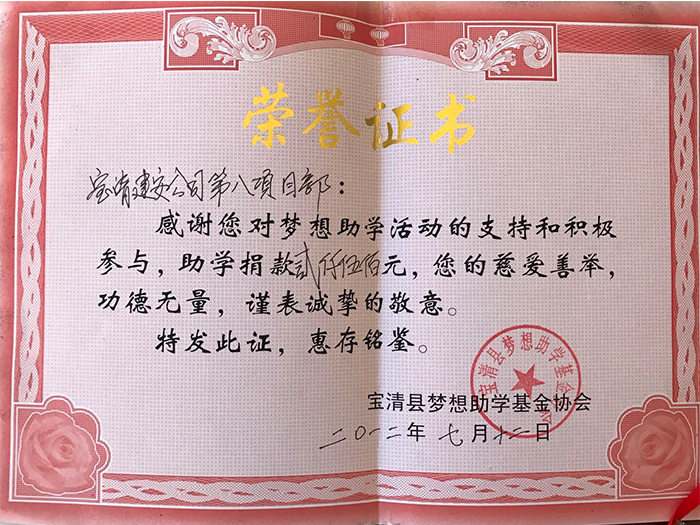 荣誉证书
宝清建安公司第八项目部：
感谢您对梦想助学活动的支持和积极
参与，助学捐款贰仟伍佰元，您的慈爱善举，
功德无量，谨表诚挚的敬意。
特发此证，惠存铭鉴。
宝清县梦想助学基金协会
宝清县梦想助学基金协会
二〇一二年七月十二日